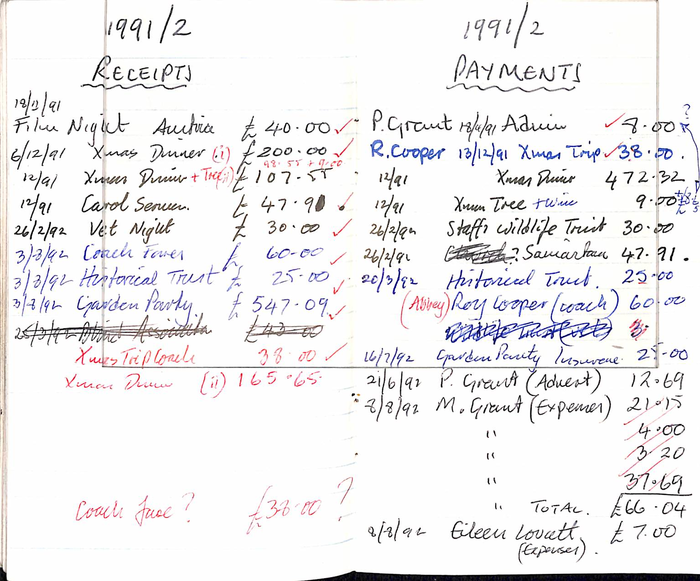 1991/2
RECEIPTS
18/11/91
Film Night Austria £40.00 ✓
6/12/91 Xmas Dinner (i) £200.00 ✓
98.55 + 9.00
12/91 Xmas Dinner + Tree(ii) £107.55
12/91 Carol Service £47.91
26/2/92 Vet Night £30.00 ✓
3/3/92 Coach Fares £60.00 ✓
3/3/92 Historical Trust £25.00 ✓
3/7/92 Garden Party £547.09 ✓
25/3/92 Blind £43.00
Xmas Trip Coach 38.00 ✓
Xmas Dinner (ii) 165.65
Coach fare? £38.00?
1991/2
PAYMENTS
P. Grant 18/9/91 Admin ✓ 8.00 ?
R. Cooper 13/12/91 Xmas Trip ✓ 38.00.
12/91 Xmas Dinner 472.32
12/91 Xmas Tree + Wine 9.00
26/2/92 Staffs Wildlife Trust 30.00
26/2/92 ? Samaritan 47.91.
20/3/92 Historical Trust. 25.00
(Abbey) Roy Cooper (coach) 60.00
16/7/92 Garden Party Insurance 25.00
21/6/92 P. Grant (Advert) 12.69
8/8/92 M. Grant (Expenses) 21.15
" 4.00
" 3.20
" 37.69
" TOTAL £66.04
8/8/92 Eileen Lovatt £7.00
(Expenses).